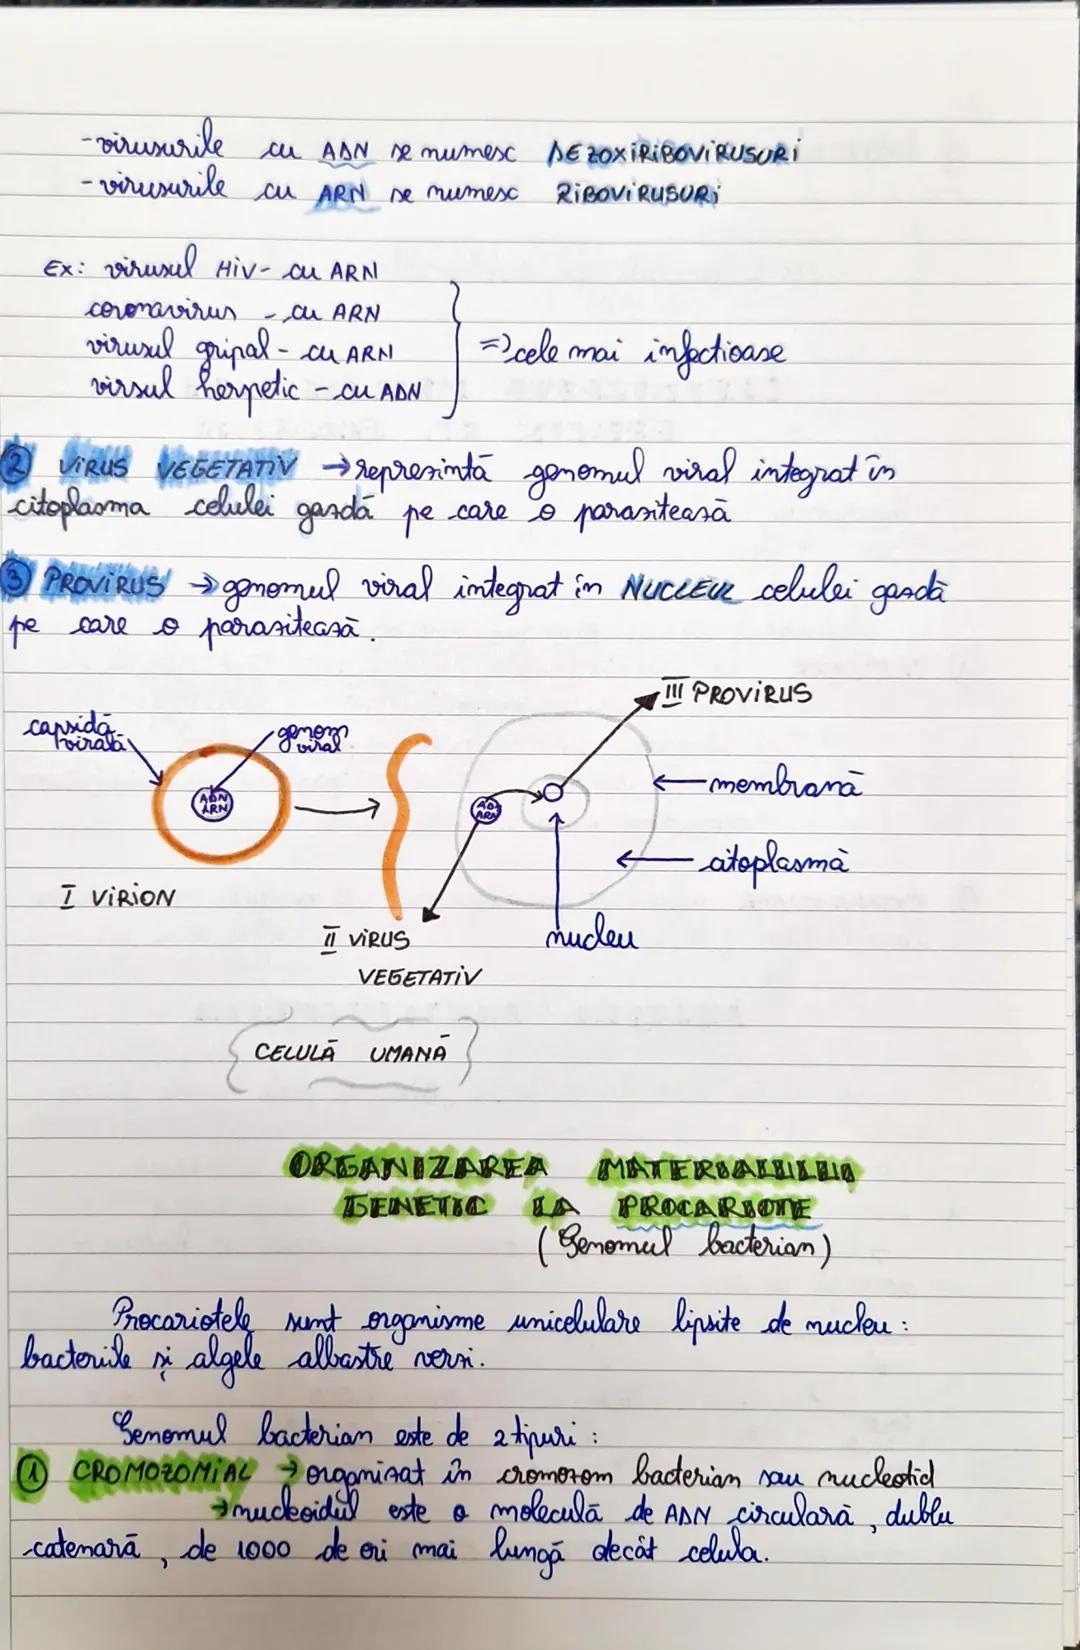 -virusurile cu ADN se numesc DEZOXIRIBOVIRUSURI
-virusurile cu ARN se numesc RIBOVIRUSURI
Ex: virusul HIV- cu ARN
coronavirus - cu ARN
virusul gripal - cu ARN
virsul herpetic - cu ADN
=> cele mai infectioase
2 VIRUS VEGETATIV → reprezintă genomul viral integrat în
citoplasma celulei gazdă pe care o parazitează
3 PROVIRUS → genomul viral integrat în NUCLEUL celulei gazdă
pe care o parazitează.
III PROVIRUS
capsidă
virală
genom
viral
ADN
ARN
AD
ARN
membrană
citoplasmă
I VIRION
II VIRUS
VEGETATIV
nucleu
CELULĂ UMANĂ
ORGANIZAREA MATERIALULUI
GENETIC LA PROCARIOTE
(Genomul bacterian)
Procariotele sunt organisme unicelulare lipsite de nucleu:
bacteriile și algele albastre verzi.
Genomul bacterian este de 2 tipuri:
1 CROMOZOMIAL → organizat în cromozom bacterian sau nucleotid
→ nucleoidul este o moleculă de ADN circulară, dublu
catenară, de 1000 de ori mai lungă decât celula.